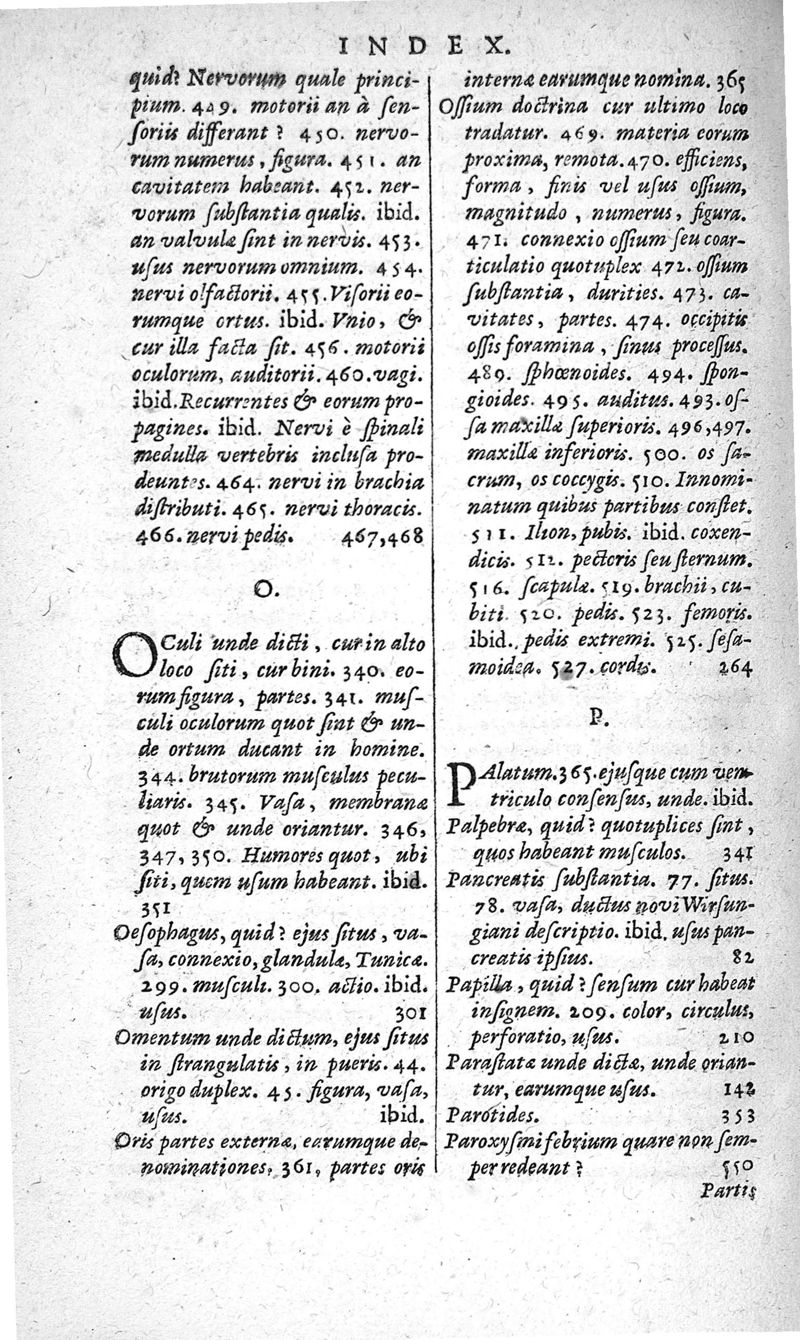 INDEX.
quid? Nervorum quale princi-
pium. 449. motorii an à sen-
soriis differant? 450. nervo-
rum numerus, figura. 451. an
cavitatem habeant. 452. ner-
vorum substantia qualis. ibid.
an valvulæ sint in nervis. 453.
usus nervorum omnium. 454.
nervi olfactorii. 455. Visorii eo-
rumque ortus. ibid. Vnio, &
cur illa facta sit. 456. motorii
oculorum, auditorii. 460. vagi.
ibid. Recurrentes & eorum pro-
pagines. ibid. Nervi è spinali
medulla vertebris inclusa pro-
deuntes. 464. nervi in brachia
distributi. 465. nervi thoracis.
466. nervi pedis. 467, 468
O.
OCuli unde dicti, cur in alto
loco siti, cur bini. 340. eo-
rum figura, partes. 341. mus-
culi oculorum quot sint & un-
de ortum ducant in homine.
344. brutorum musculus pecu-
liaris. 345. Vasa, membranæ
quot & unde oriantur. 346,
347, 350. Humores quot, ubi
siti, quem usum habeant. ibid.
351
Oesophagus, quid? ejus situs, va-
sa, connexio, glandulæ, Tunicæ.
299. musculi. 300. actio. ibid.
usus. 301
Omentum unde dictum, ejus situs
in strangulatis, in pueris. 44.
origo duplex. 45. figura, vasa,
usus. ibid.
Oris partes externæ, earumque de-
nominationes. 361, partes oris
internæ earumque nomina. 365
Ossium doctrina cur ultimo loco
tradatur. 469. materia eorum
proxima, remota. 470. efficiens,
forma, finis vel usus ossium,
magnitudo, numerus, figura.
471. connexio ossium seu coar-
ticulatio quotuplex 472. ossium
substantia, durities. 473. ca-
vitates, partes. 474. occipitis
ossis foramina, sinus processus.
489. sphœnoides. 494. spon-
gioides. 495. auditus. 493. os-
sa maxillæ superioris. 496, 497.
maxillæ inferioris. 500. os sa-
crum, os coccygis. 510. Innomi-
natum quibus partibus constet.
511. Ilion, pubis. ibid. coxen-
dicis. 512. pectoris seu sternum.
516. scapulæ. 519. brachii, cu-
biti. 520. pedis. 523. femoris.
ibid. pedis extremi. 525. sesa-
moidea. 527. cordis. 264
P.
PAlatum. 365. ejusque cum ven-
triculo consensus, unde. ibid.
Palpebræ, quid? quotuplices sint,
quos habeant musculos. 341
Pancreatis substantia. 77. situs.
78. vasa, ductus novi Wirsun-
giani descriptio. ibid. usus pan-
creatis ipsius. 82
Papilla, quid? sensum cur habeat
insignem. 209. color, circulus,
perforatio, usus. 210
Parastatæ unde dictæ, unde orian-
tur, earumque usus. 142
Parotides. 353
Paroxysmi febrium quare non sem-
per redeant? 550
Partis